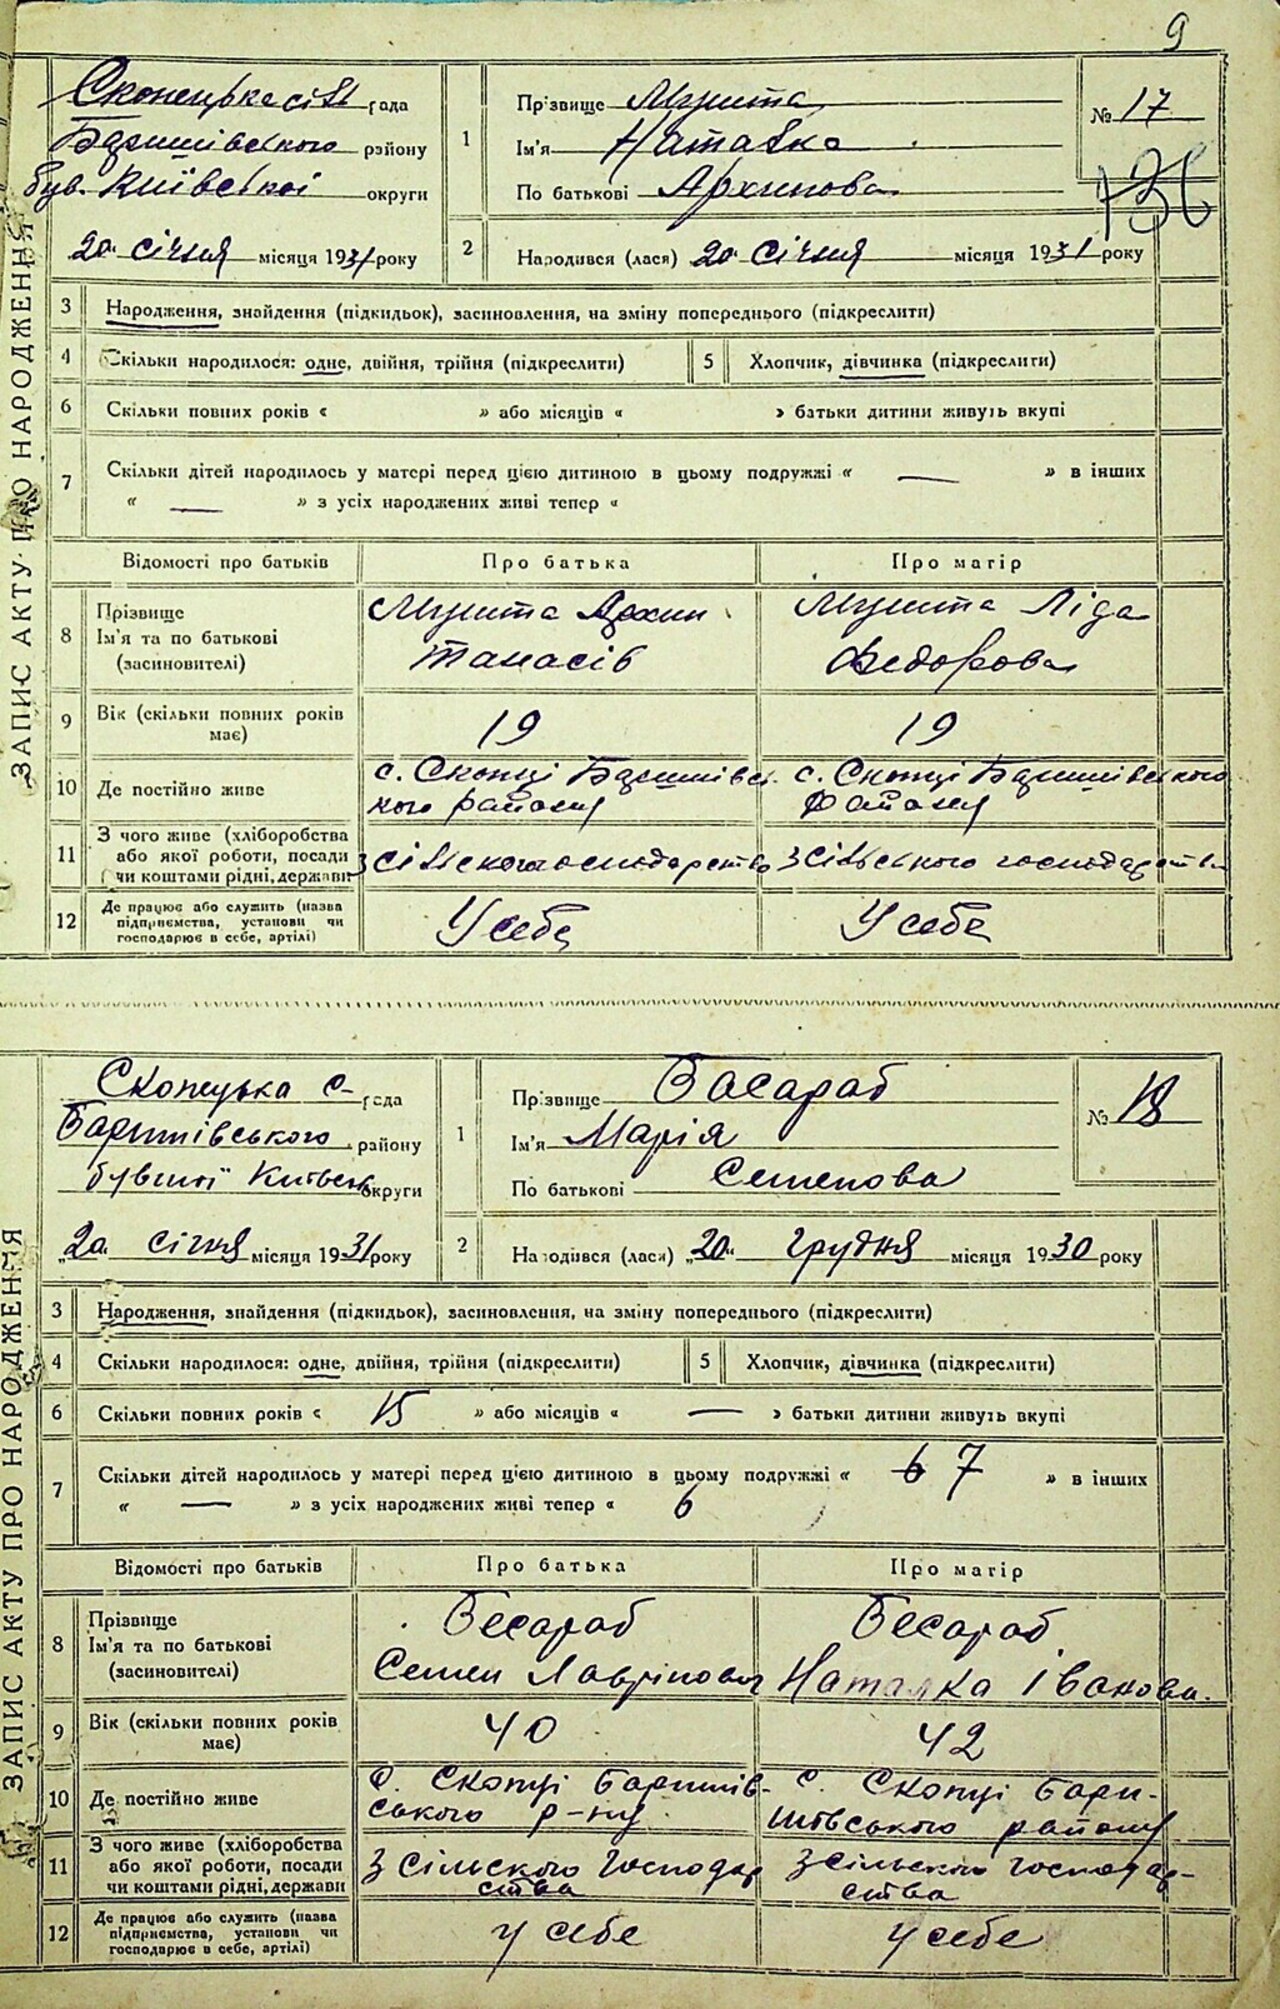 9
ЗАПИС АКТУ ПРО НАРОДЖЕННЯ
Скопецька сіль рада
Баришівського району
був. Київської округи
20 січня місяця 1931 року
1
Прізвище Мушта
Ім'я Наталка
По батькові Архипова
№ 17
136
2
Народився (лася) 20 січня місяця 1931 року
3 Народження, знайдення (підкидьок), засиновлення, на зміну попереднього (підкреслити)
4 Скільки народилося: одне, двійня, трійня (підкреслити) 5 Хлопчик, дівчинка (підкреслити)
6 Скільки повних років « » або місяців « » батьки дитини живуть вкупі
7 Скільки дітей народилось у матері перед цією дитиною в цьому подружжі « — » в інших
« — » з усіх народжених живі тепер «
Відомості про батьків Про батька Про матір
8 Прізвище
Ім'я та по батькові
(засиновителі)
Мушта Архип
Танасів
Мушта Ліда
Федорова
9 Вік (скільки повних років
має)
19
19
10 Де постійно живе
с. Скопці Баришівсь-
кого району
с. Скопці Баришівського
району
11 З чого живе (хліборобства
або якої роботи, посади
чи коштами рідні, держави
З сільского господарства
З сільського господарства
12 Де працює або служить (назва
підприємства, установи чи
господарює в себе, артілі)
У себе
У себе
ЗАПИС АКТУ ПРО НАРОДЖЕННЯ
Скопецька с- рада
Баришівського району
бувшої Київськ округи
„20 січня місяця 1931 року
1
Прізвище Басараб
Ім'я Марія
По батькові Семенова
№ 18
2
Народився (лася) „20“ грудня місяця 1930 року
3 Народження, знайдення (підкидьок), засиновлення, на зміну попереднього (підкреслити)
4 Скільки народилося: одне, двійня, трійня (підкреслити) 5 Хлопчик, дівчинка (підкреслити)
6 Скільки повних років « 15 » або місяців « — » батьки дитини живуть вкупі
7 Скільки дітей народилось у матері перед цією дитиною в цьому подружжі « 6 7 » в інших
« — » з усіх народжених живі тепер « 6
Відомості про батьків Про батька Про матір
8 Прізвище
Ім'я та по батькові
(засиновителі)
Бесараб
Семен Лаврінович
Бесараб
Наталка Іванова.
9 Вік (скільки повних років
має)
40
42
10 Де постійно живе
с. Скопці Баришів-
ського р-ну
с. Скопці Бари-
шівського району
11 З чого живе (хліборобства
або якої роботи, посади
чи коштами рідні, держави
З сільского господар
ства
З сільского господар-
ства
12 Де працює або служить (назва
підприємства, установи чи
господарює в себе, артілі)
у себе
у себе